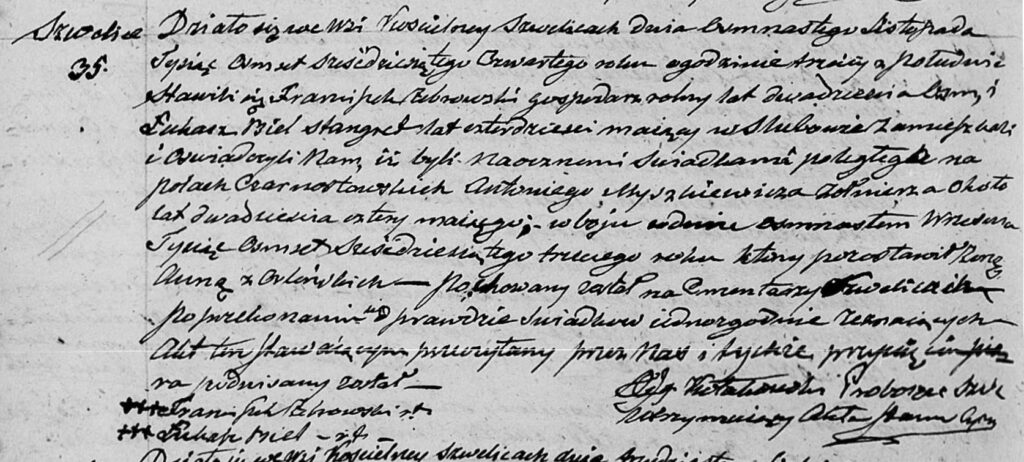 Szwelice
35.
Działo się we Wsi Kościelney Szwelicach dnia Osmnastego Listopada
Tysiąc Osmset Sześćdziesiątego Czwartego roku o godzinie trzeciey z południa
Stawili się Franciszek Żebrowski gospodarz rolny lat dwadzieścia Osm, i
Łukasz Biel stangret lat czterdzieści maiący w Słubowie Zamieszkali
i Oświadczyli Nam, iż byli naocznemi Świadkami poległego na
polach Czarnostowskich Antoniego Myszkiewicza żołnierza około
lat dwadzieścia cztery maiącego; w boju w dniu osmnastem Września
Tysiąc Osmset Sześćdziesiątego trzeciego roku który pozostawił Żonę
Annę z Orlińskich — Pochowany został na Cmentarzu Szwelickim
Po przekonaniu o prawdzie świadków iednozgodnie zeznaiących
Akt ten Stawaiącym przeczytany przez Nas i tychże
podpisany został —
+++ Franciszek Żebrowski
+++ Łukasz Biel
Proboszcz Szwe
utrzymuiący Akta Stanu Cyw
Działo się we Wsi Kościelney Szwelicach dnia